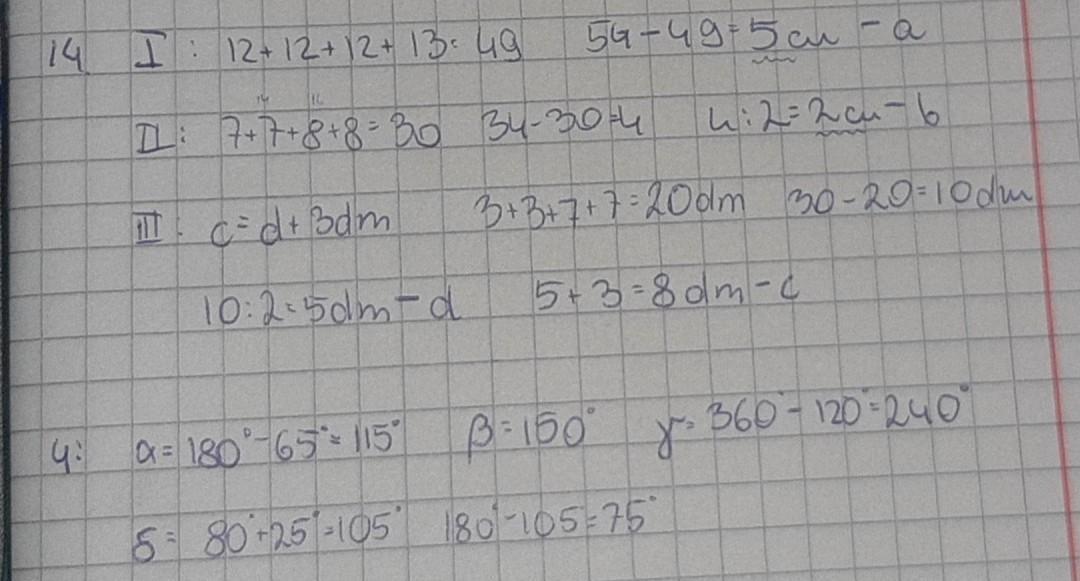 14 I : 12+12+12+13=49 54-49=5cm - a
II: 7+7+8+8=30 34-30=4 4:2=2cm - b
III: c=d+3dm 3+3+7+7=20dm 30-20=10dm
10:2=5dm - d 5+3=8dm - c
4: α=180°-65°=115° β=150° γ=360°-120°=240°
δ= 80°+25°=105° 180°-105=75°